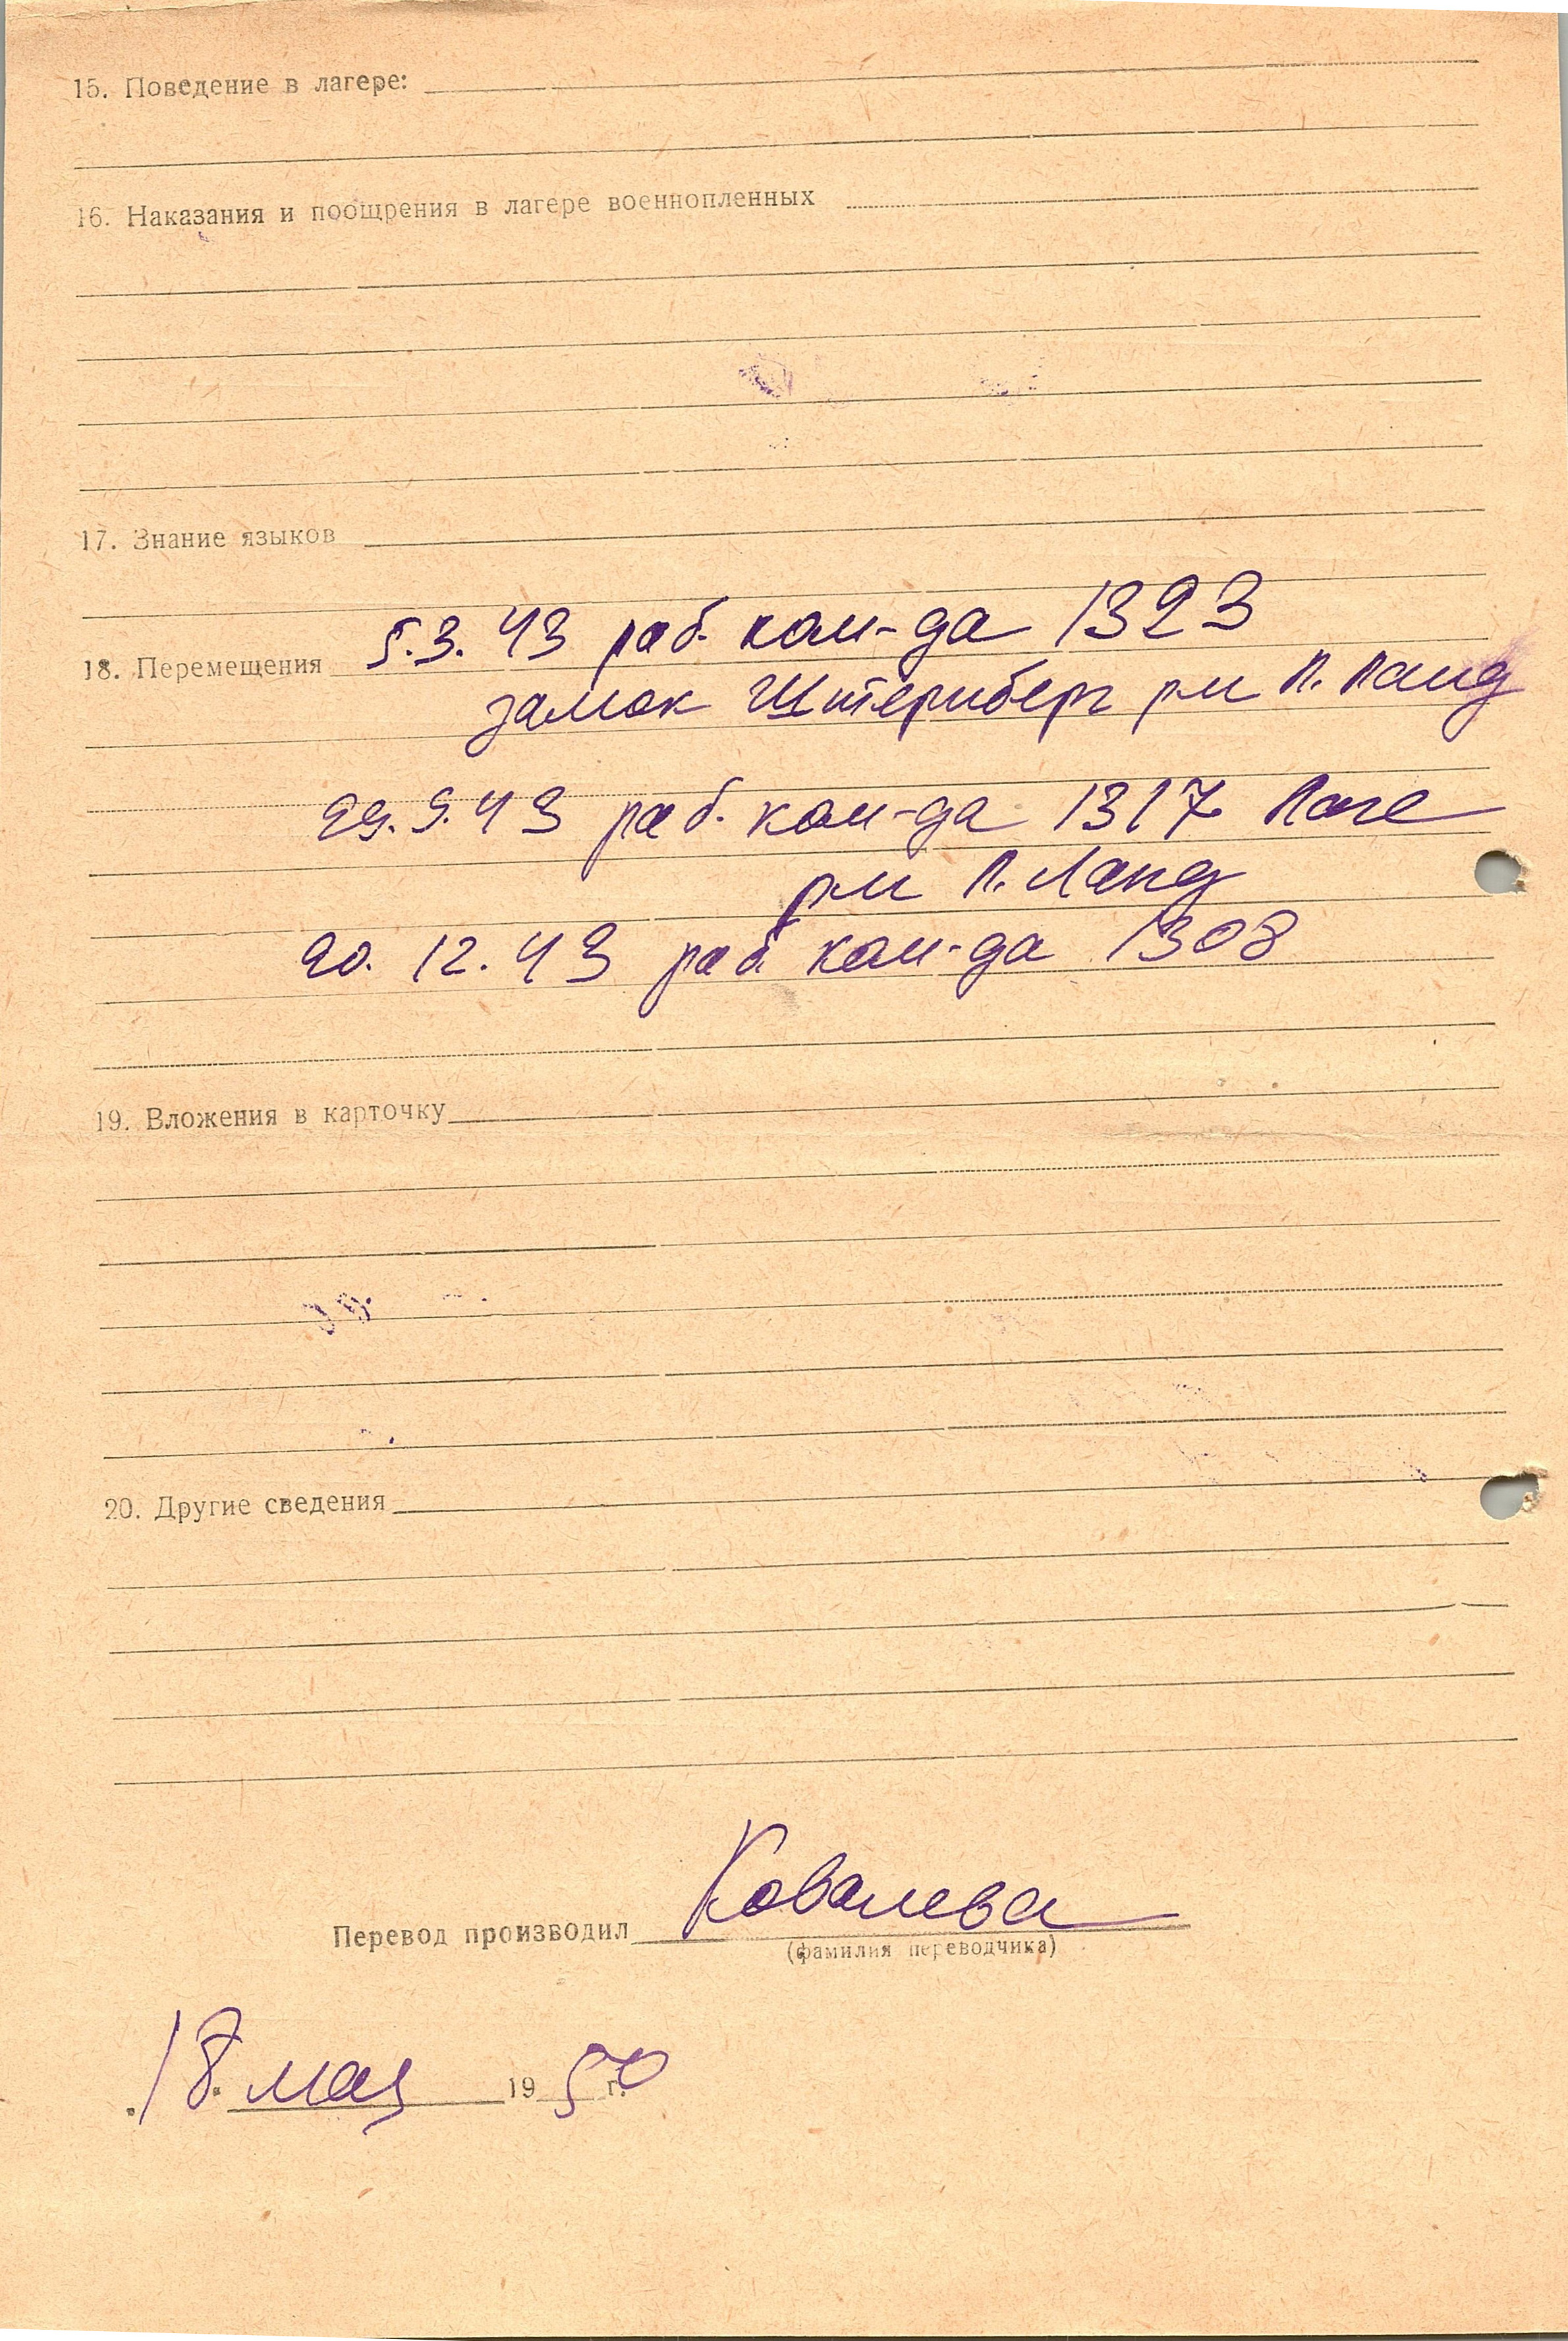 15. Поведение в лагере:
16. Наказания и поощрения в лагере военнопленных
17. Знание языков
5.3.43 раб. ком-да 1323
18. Перемещения
замок Штернберг рм Л. Ланд
29.9.43 раб. ком-да 1317 Лаге
рм Л. Ланд
20.12.43 раб ком-да 1308
19. Вложения в карточку
20. Другие сведения
Перевод производил Ковалева
(фамилия переводчика)
18. мая 1950 г.